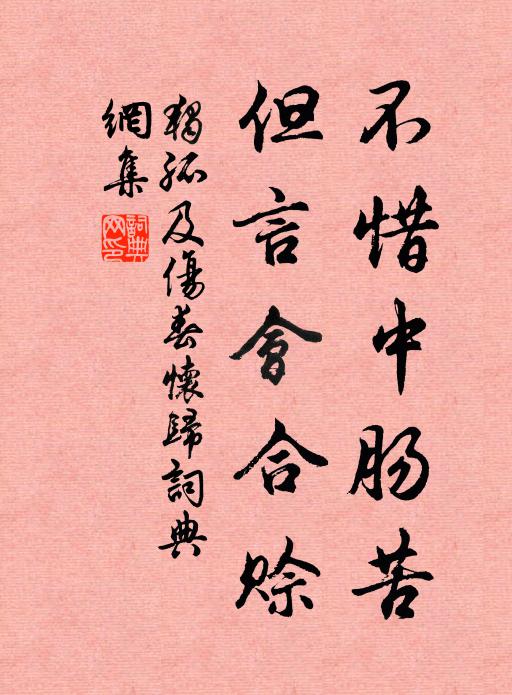 不惜中肠苦
但言會合賒
獨孤及傷春懷歸詞典
網集
詞典網印